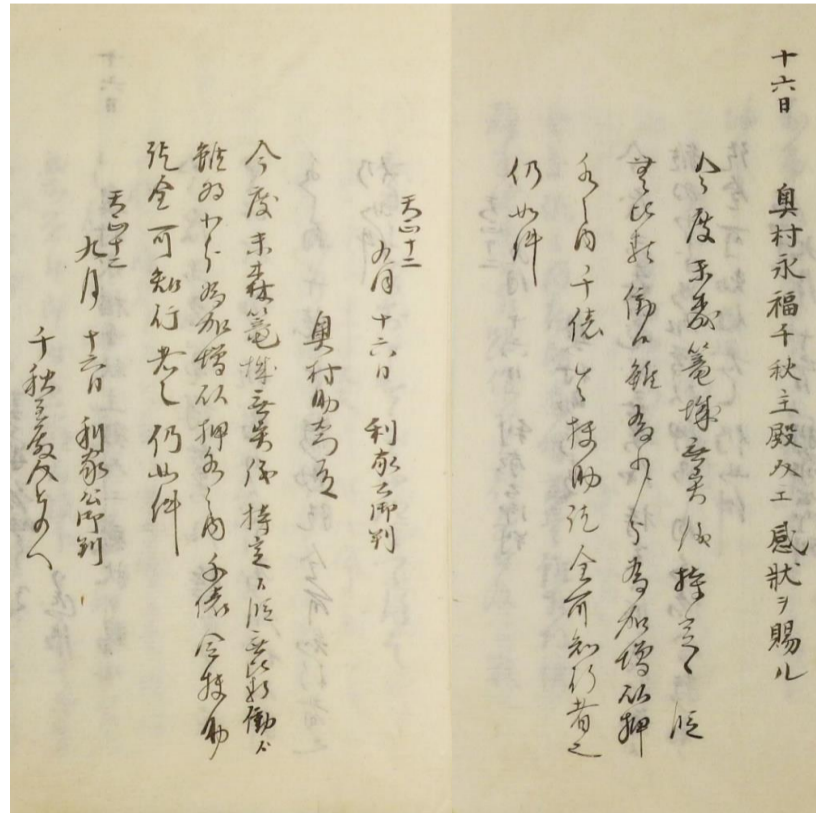 十六日 奥村永福千秋主殿介エ感状ヲ賜ル
今度末森篭城無異儀持定候段
無比類働候雖為少分為加増以押
水之内千俵令扶助訖全可知行者也
仍如件
天正十二
九月十六日 利家公御判
奥村助右衛門殿
今度末森篭城無異儀持定候段無比類働候
雖為少分為加増以押水之内千俵令扶助
訖全可知行者也仍如件
天正十二
九月十六日 利家公御判
千秋主殿介とのへ